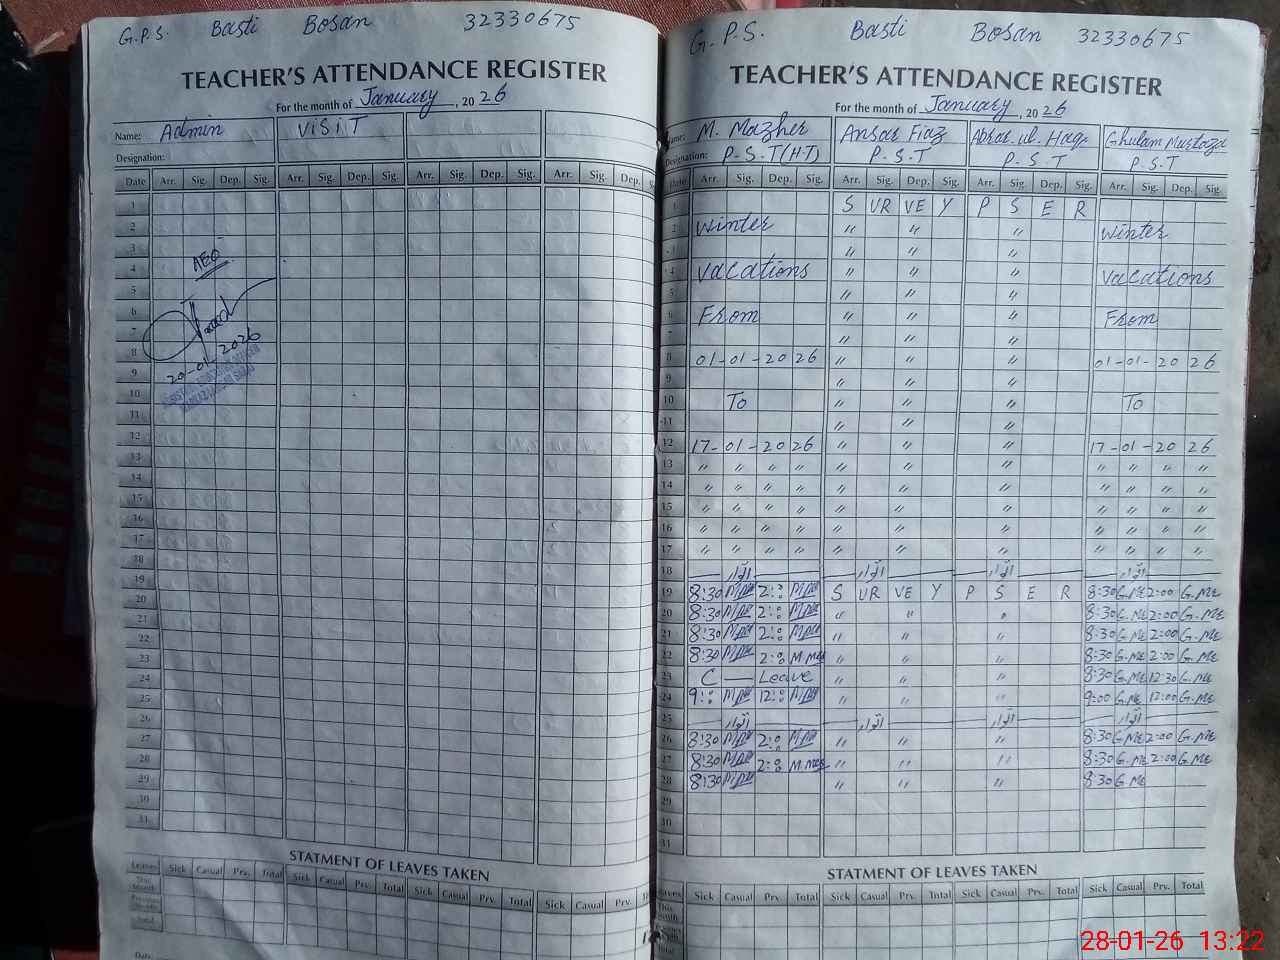 G.P.S. Basti Bosan 32330675
TEACHER'S ATTENDANCE REGISTER
For the month of January, 2026
Name: Admin VisiT
Designation:
Date Arr. Sig. Dep. Sig. Arr. Sig. Dep. Sig. Arr. Sig. Dep. Sig. Arr. Sig. Dep.
1
2
3
AEO
4
5
6
7
8
20-01-2026
9
10
11
12
13
14
15
16
17
18
19
20
21
22
23
24
25
26
27
28
29
30
31
STATMENT OF LEAVES TAKEN
Leaves Sick Casual Prv. Total Sick Casual Prv. Total Sick Casual Prv. Total Sick Casual Prv.
This Month
G.P.S. Basti Bosan 32330675
TEACHER'S ATTENDANCE REGISTER
For the month of January, 2026
Name: M. Mazher Ansar Fiaz Abrar.ul.Haq Ghulam Murtaza
Designation: P.S.T(H.T) P.S.T P.S.T P.S.T
Date Arr. Sig. Dep. Sig. Arr. Sig. Dep. Sig. Arr. Sig. Dep. Sig. Arr. Sig. Dep. Sig.
1 S UR VE Y P S E R
2 Winter " " " Winter
3 " " "
4 Vacations " " " Vacations
5 " " "
6 From " " " From
7 " " "
8 01-01-2026 " " " 01-01-2026
9 " " "
10 To " " " To
11 " " "
12 17-01-2026 " " " 17-01-2026
13 " " " " " " " " " " "
14 " " " " " " " " " " "
15 " " " " " " " " " " "
16 " " " " " " " " " " "
17 " " " " " " " " " " "
18 اتوار اتوار اتوار اتوار
19 8:30 2:00 S UR VE Y P S E R 8:30 G.ME 2:00 G.ME
20 8:30 2:00 " " " 8:30 G.ME 2:00 G.ME
21 8:30 2:00 " " " 8:30 G.ME 2:00 G.ME
22 8:30 2:00 " " " 8:30 G.ME 2:00 G.ME
23 C — Leave " " " 8:30 G.ME 12:30 G.ME
24 9:00 12:00 " " " 9:00 G.ME 12:00 G.ME
25 اتوار اتوار اتوار اتوار
26 8:30 2:00 " " " 8:30 G.ME 2:00 G.ME
27 8:30 2:00 " " " 8:30 G.ME 2:00 G.ME
28 8:30 " " " 8:30 G.ME
29
30
31
STATMENT OF LEAVES TAKEN
Leaves Sick Casual Prv. Total Sick Casual Prv. Total Sick Casual Prv. Total Sick Casual Prv. Total
28-01-26 13:22